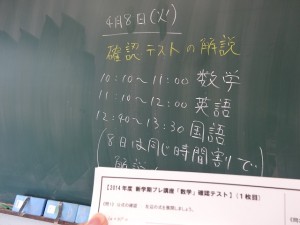 4月8日(火)
確認テストの解説
10:10～11:00 数学
11:10～12:00 英語
12:40～13:30 国語
(8日は同じ時間割で
解説
【2014年度 新学期プレ講座「数学」確認テスト】(1枚目)